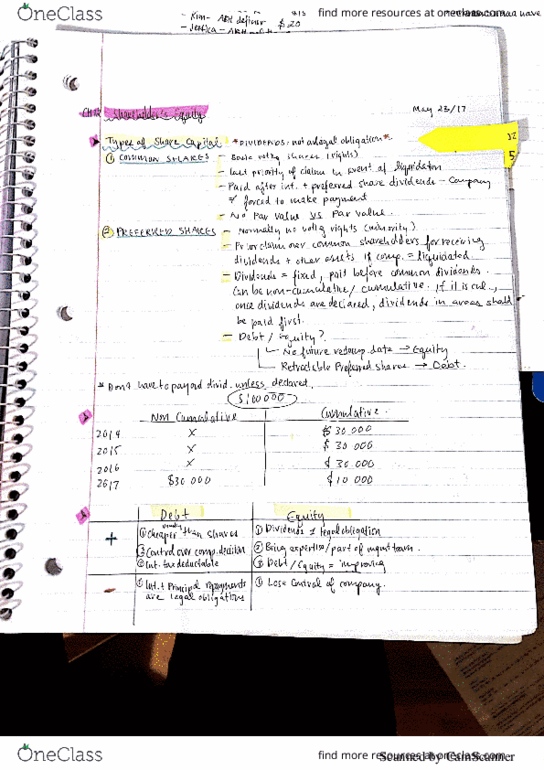 OneClass
find more resources at oneclass.com
$20
Shareholder's Equity
May 23/17
Types of Share Capital *DIVIDENDS: not a legal obligation*
① COMMON SHARES - Basic voting shares (rights)
- Last priority of claim in event of liquidation
- Paid after int. + preferred share dividends - Company
≠ forced to make payment
- No Par value VS Par value.
② PREFERRED SHARES - Normally no voting rights (minority)
- Prior claim over common shareholders for receiving
dividends + other assets if comp. = liquidated
- Dividends = fixed, paid before common dividends.
Can be non-cumulative / cumulative. If it is cul.,
once dividends are declared, dividends in arears should
be paid first.
- Debt / Equity?
No future redemp date → Equity
Retractable Preferred shares → Debt.
* Don't have to pay out divid. unless declared.
$100 000
Non Cumulative Cumulative.
2014 X $30 000
2015 X $30 000
2016 X $30 000
2017 $30 000 $10 000
Debt Equity
+ ① usually Cheaper than shares ① Dividends ≠ legal obligation
② Control over comp. decision ② Bring expertise/part of mgmt team.
③ Int. tax deductable ③ Debt / Equity = improving
- ① Int. + Principal repayments ① Lose control of company.
are legal obligations
OneClass
find more resources at oneclass.com
Scanned by CamScanner